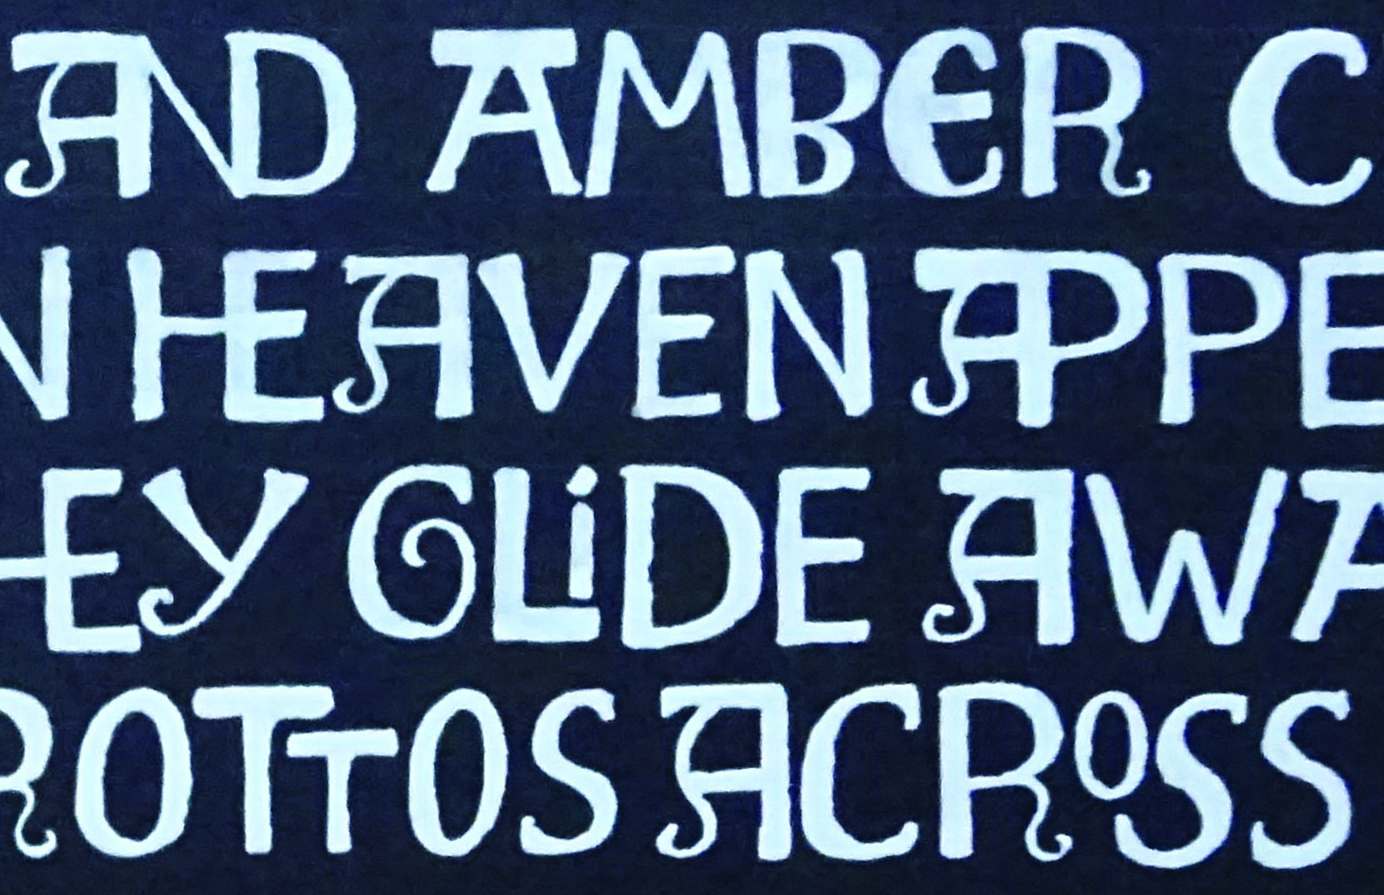 AND AMBER C
N HEAVEN APPE
HEY GLiDE AWA
ROTTOS ACROSS